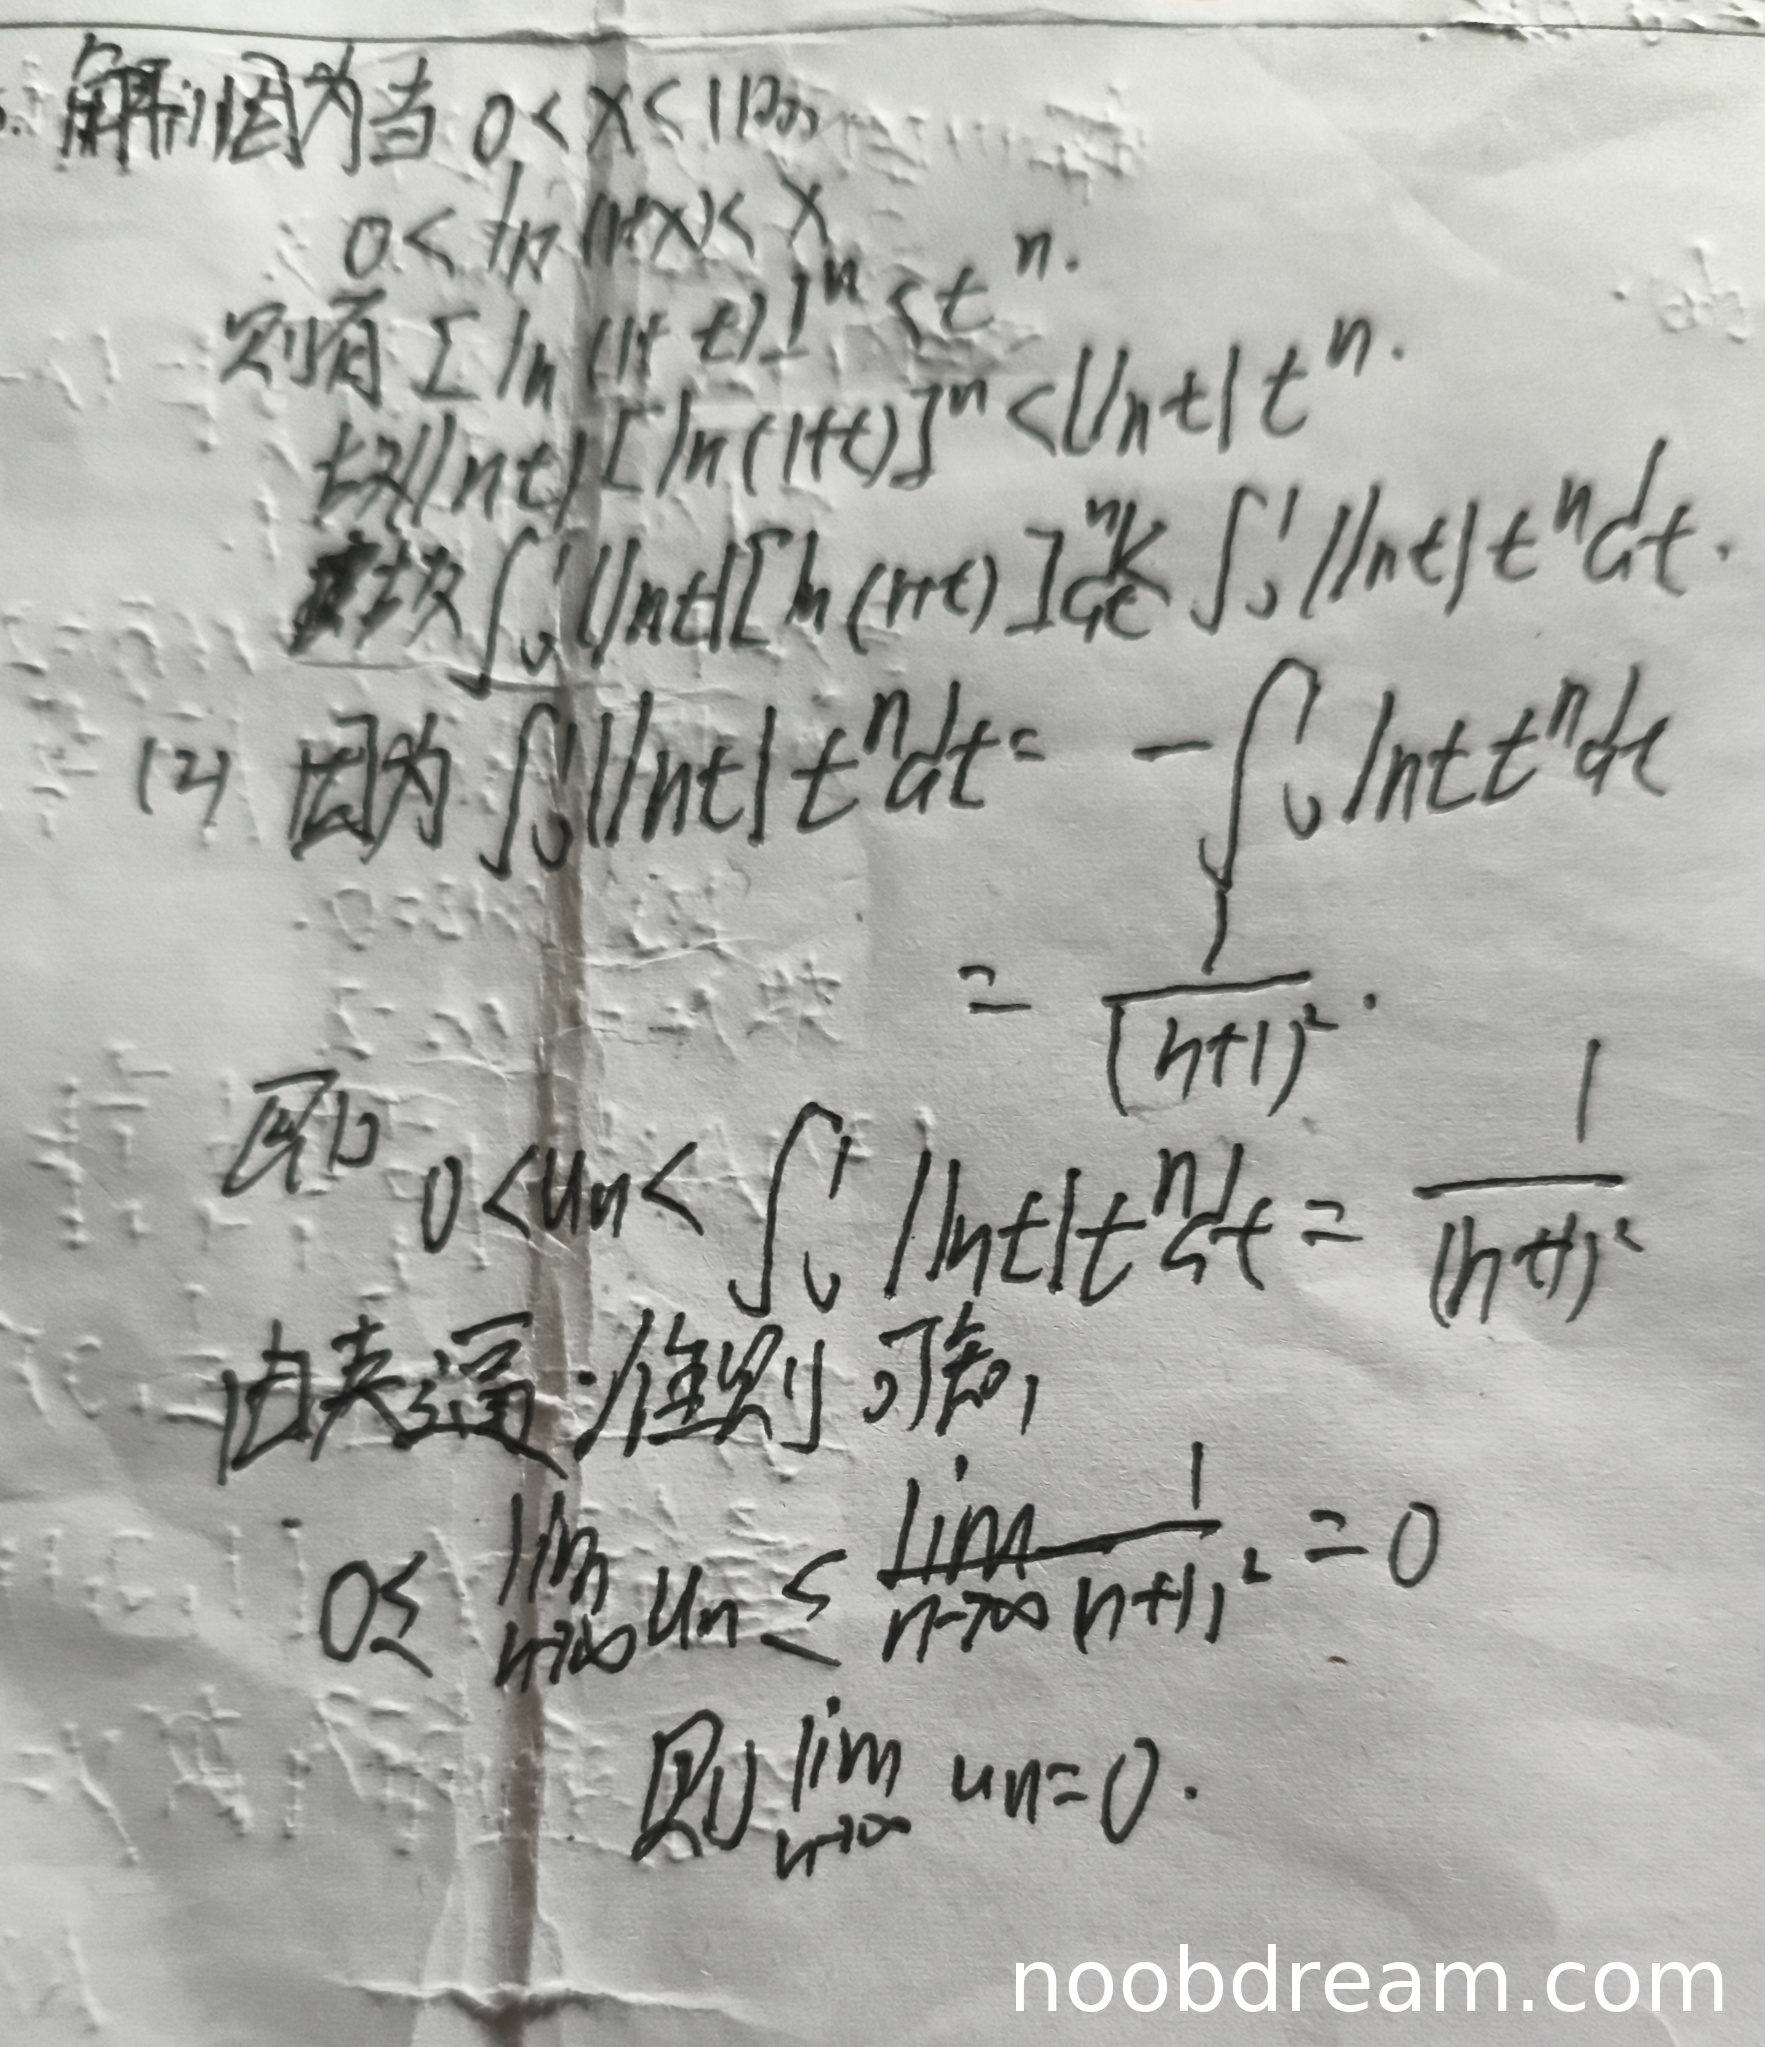 解(1)因为当 0<x<1时
0< ln(1+x)< x
则有 [ln(1+t)]ⁿ <tⁿ.
故|lnt|[ln(1+t)]ⁿ <|lnt|tⁿ.
故∫₀¹|lnt|[ln(1+t)]ⁿdt< ∫₀¹|lnt|tⁿdt.
(2) 因为 ∫₀¹|lnt|tⁿdt= -∫₀¹lnt tⁿdt
= 1/(n+1)².
即 0<un< ∫₀¹|lnt|tⁿdt= 1/(n+1)²
由夹逼准则可知,
0≤ lim n→∞ un ≤ lim n→∞ 1/(n+1)² =0
则 lim n→∞ un=0.
noobdream.com